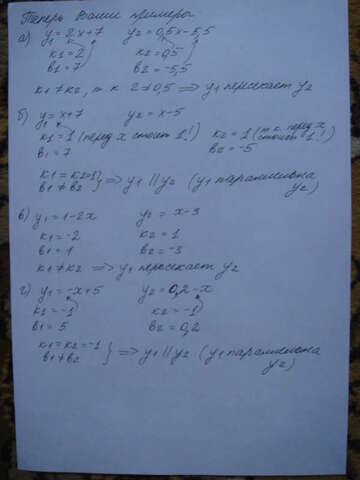 Теперь Ваши примеры.
а) y₁ = 2x+7 y₂ = 0,5x-5,5
к₁ = 2 к₂ = 0,5
в₁ = 7 в₂ = -5,5
к₁ ≠ к₂, т к 2≠0,5 ⟹ y₁ пересекает y₂
б) y₁ = x+7 y₂ = x-5
к₁ = 1 (перед x стоит 1!) к₂ = 1 (т к. перед x стоит 1!)
в₁ = 7 в₂ = -5
к₁ = к₂=1
в₁ ≠ в₂ } ⟹ y₁ || y₂ (y₁ параллельна y₂)
в) y₁ = 1-2x y₂ = x-3
к₁ = -2 к₂ = 1
в₁ = 1 в₂ = -3
к₁ ≠ к₂ ⟹ y₁ пересекает y₂
г) y₁ = -x+5 y₂ = 0,2-x
к₁ = -1 к₂ = -1
в₁ = 5 в₂ = 0,2
к₁ = к₂ = -1
в₁ ≠ в₂ } ⟹ y₁ || y₂ (y₁ параллельна y₂)